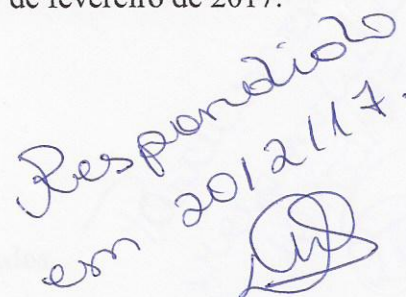 de fevereiro de 2017.
Respondido
em 20/2/17.